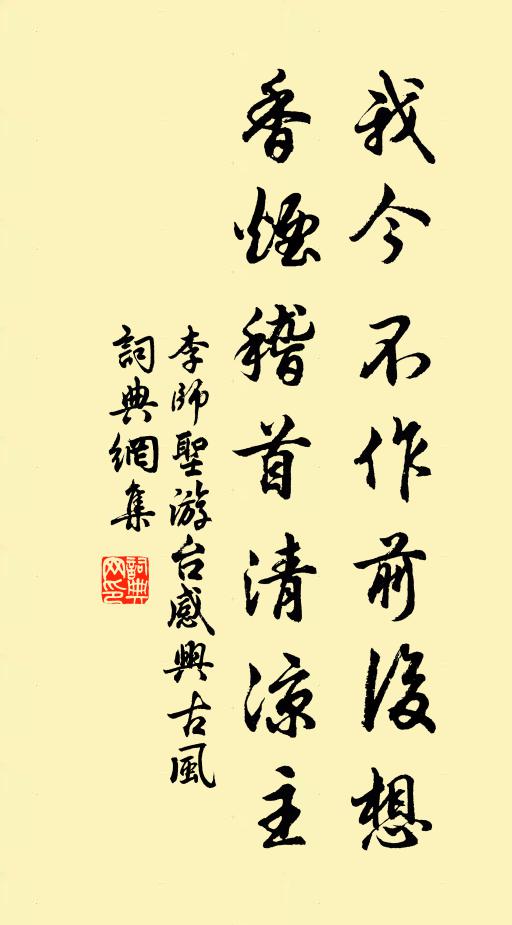 我今不作前後想
香煙稽首清涼主
李師聖游台感興古風
詞典網集
詞典
网印